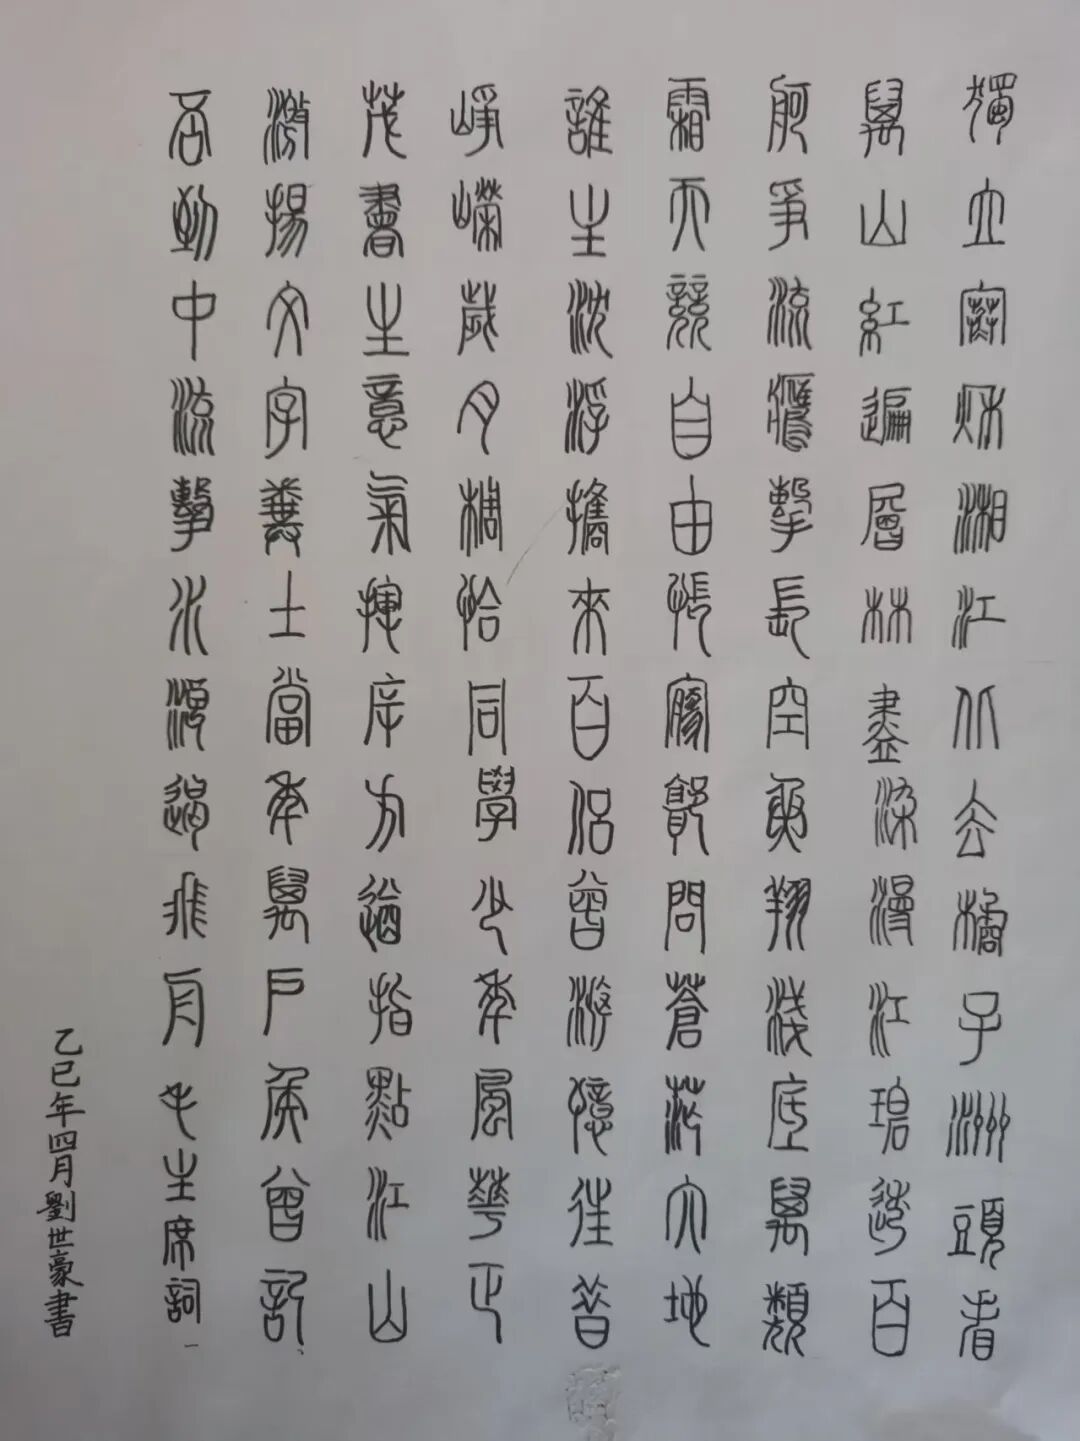 獨立寒秋湘江北去橘子洲頭看
萬山紅遍層林盡染漫江碧透百
舸爭流鷹擊長空魚翔淺底萬類
霜天競自由悵寥廓問蒼茫大地
誰主沈浮攜來百侶曾游憶往昔
崢嶸歲月稠恰同學少年風華正
茂書生意氣揮斥方遒指點江山
激揚文字糞土當年萬戶侯曾記
否到中流擊水浪遏飛舟毛主席詞
乙巳年四月劉世豪書